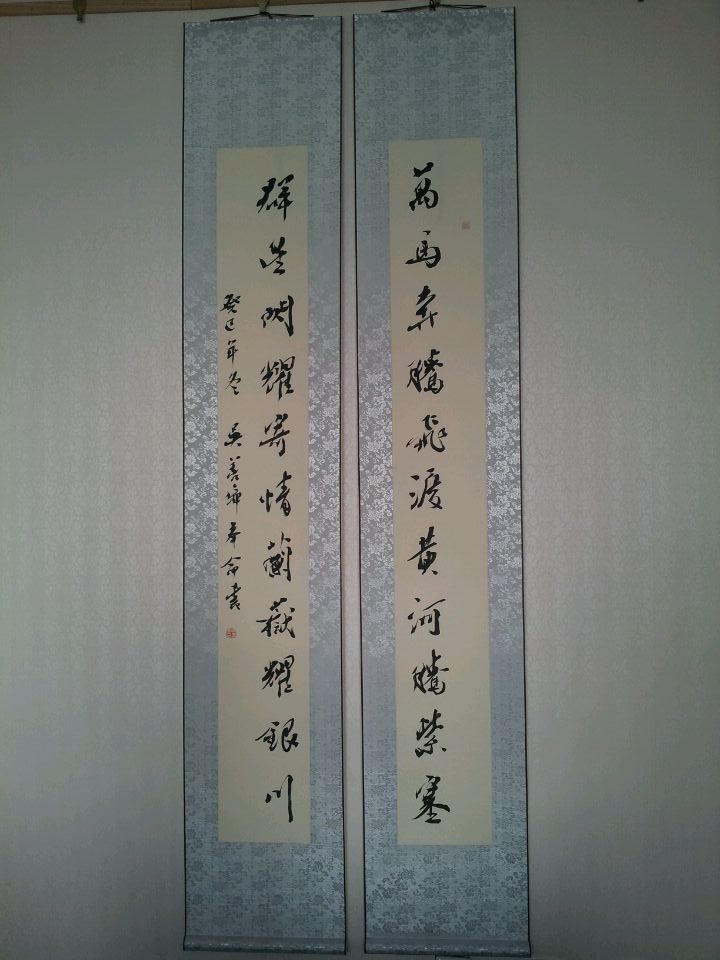 萬馬奔騰飛渡黄河騰紫塞
群星閃耀寄情蘭嶽耀銀川
癸巳年冬 吳善璋奉命書